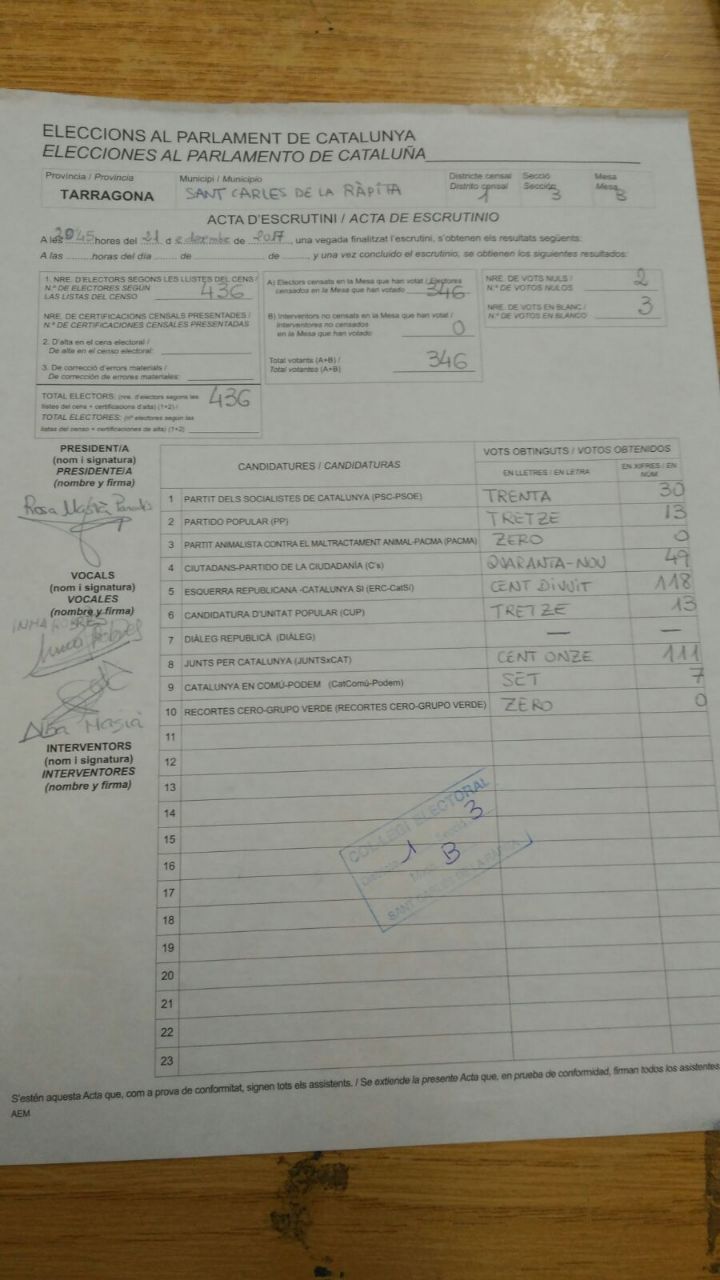 ELECCIONS AL PARLAMENT DE CATALUNYA
ELECCIONES AL PARLAMENTO DE CATALUÑA
Província / Provincia
TARRAGONA
Municipi / Municipio
SANT CARLES DE LA RÀPITA
Districte censal
Distrito censal
1
Secció
Sección
3
Mesa
Mesa
B
ACTA D'ESCRUTINI / ACTA DE ESCRUTINIO
A les 20'45 hores del 21 d e desembre de 2017, una vegada finalitzat l'escrutini, s'obtenen els resultats següents:
A las ......... horas del día ...... de .................. de ........., y una vez concluido el escrutinio, se obtienen los siguientes resultados:
1. NRE. D'ELECTORS SEGONS LES LLISTES DEL CENS /
N.º DE ELECTORES SEGÚN
LAS LISTAS DEL CENSO 436
NRE. DE CERTIFICACIONS CENSALS PRESENTADES /
N.º DE CERTIFICACIONES CENSALES PRESENTADAS
2. D'alta en el cens electoral /
De alta en el censo electoral:
3. De correcció d'errors materials /
De corrección de errores materiales:
TOTAL ELECTORS: (nre. d'electors segons les
llistes del cens + certificacions d'alta) (1+2) / 436
TOTAL ELECTORES: (nº electores según las
listas del censo + certificaciones de alta) (1+2)
A) Electors censats en la Mesa que han votat / Electores
censados en la Mesa que han votado 346
B) Interventors no censats en la Mesa que han votat /
Interventores no censados
en la Mesa que han votado 0
Total votants (A+B) /
Total votantes (A+B) 346
NRE. DE VOTS NULS /
N.º DE VOTOS NULOS 2
NRE. DE VOTS EN BLANC /
N.º DE VOTOS EN BLANCO 3
PRESIDENT/A
(nom i signatura)
PRESIDENTE/A
(nombre y firma)
Rosa
VOCALS
(nom i signatura)
VOCALES
(nombre y firma)
INMA ROBRES
Alba Masià
INTERVENTORS
(nom i signatura)
INTERVENTORES
(nombre y firma)
CANDIDATURES / CANDIDATURAS
VOTS OBTINGUTS / VOTOS OBTENIDOS
EN LLETRES / EN LETRA
EN XIFRES / EN NÚM
1 PARTIT DELS SOCIALISTES DE CATALUNYA (PSC-PSOE) TRENTA 30
2 PARTIDO POPULAR (PP) TRETZE 13
3 PARTIT ANIMALISTA CONTRA EL MALTRACTAMENT ANIMAL-PACMA (PACMA) ZERO 0
4 CIUTADANS-PARTIDO DE LA CIUDADANÍA (C's) QUARANTA-NOU 49
5 ESQUERRA REPUBLICANA -CATALUNYA SI (ERC-CatSí) CENT DIVUIT 118
6 CANDIDATURA D'UNITAT POPULAR (CUP) TRETZE 13
7 DIÀLEG REPUBLICÀ (DIÀLEG) — —
8 JUNTS PER CATALUNYA (JUNTSxCAT) CENT ONZE 111
9 CATALUNYA EN COMÚ-PODEM (CatComú-Podem) SET 7
10 RECORTES CERO-GRUPO VERDE (RECORTES CERO-GRUPO VERDE) ZERO 0
11
12
13
14
15
16
17
18
19
20
21
22
23
COL·LEGI ELECTORAL
Districte 1 Secció 3
Mesa B
SANT CARLES DE LA RÀPITA
S'estén aquesta Acta que, com a prova de conformitat, signen tots els assistents. / Se extiende la presente Acta que, en prueba de conformidad, firman todos los asistentes
AEM